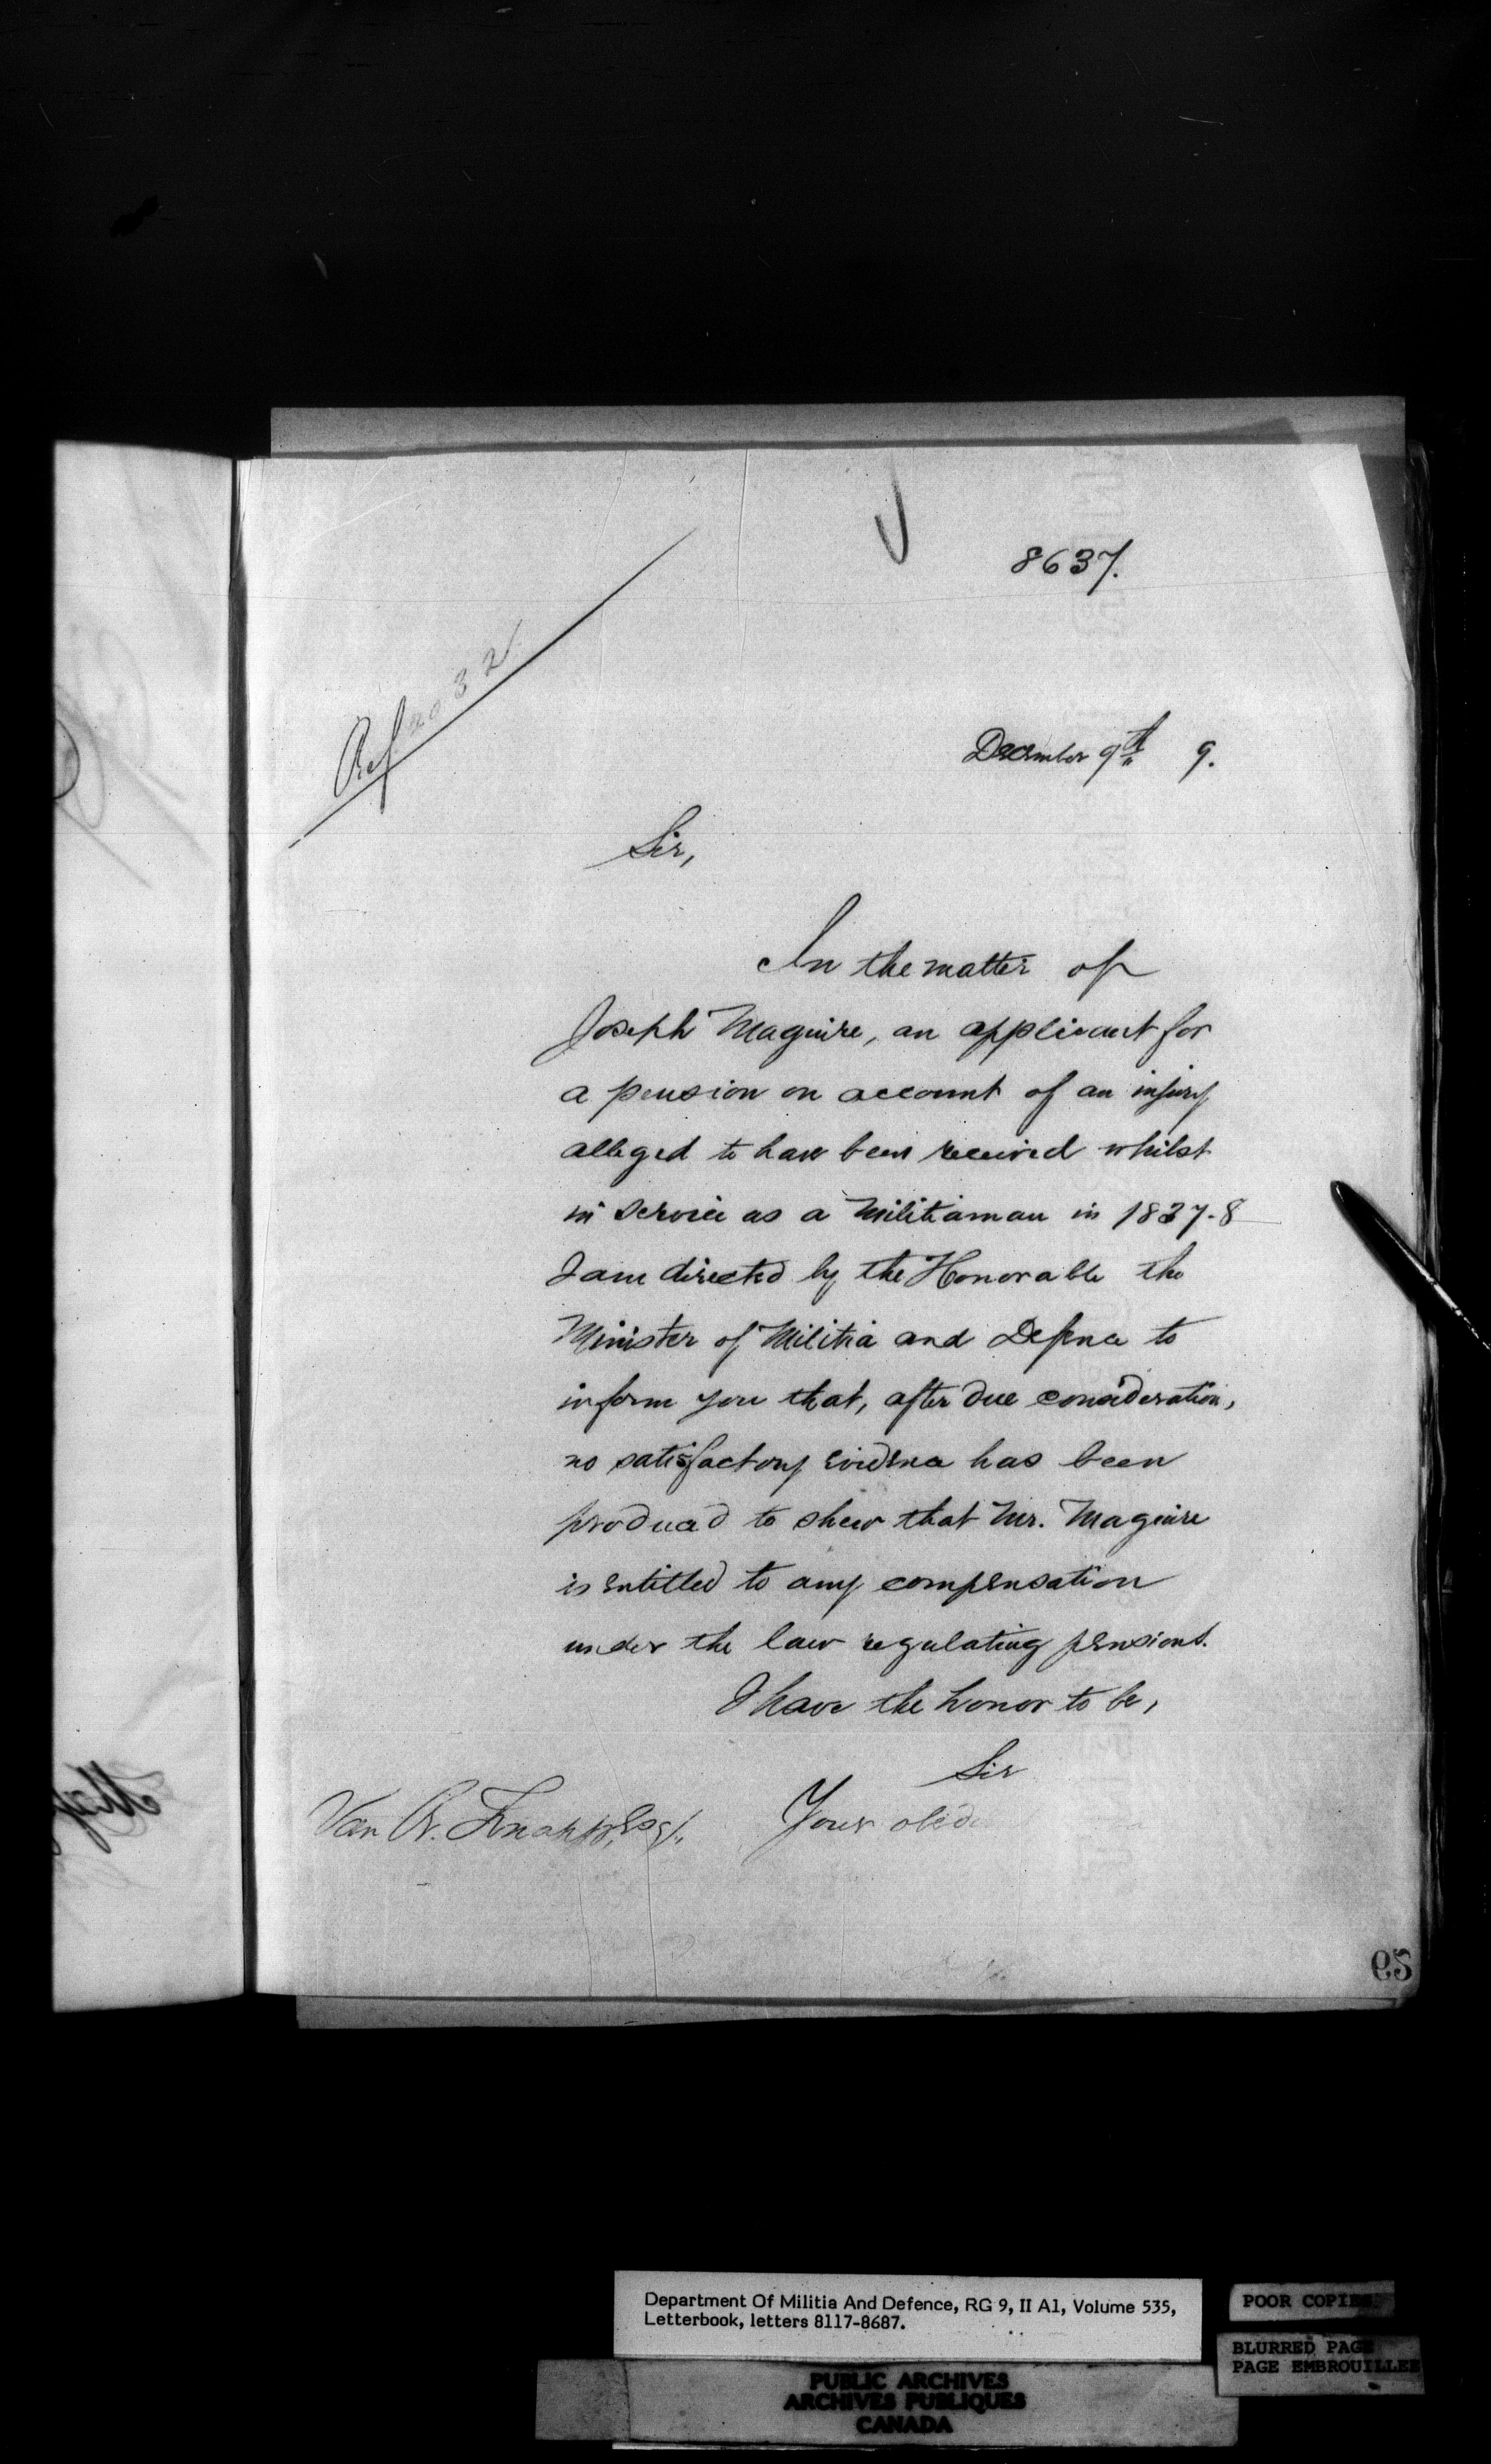 8637.
Ref no 32
December 9th 9.
Sir,
In the matter of
Joseph Maguire, an applicant for
a pension on account of an injury
alleged to have been received whilst
in service as a Militiaman in 1837-8
I am directed by the Honorable the
Minister of Militia and Defence to
inform you that, after due consideration,
no satisfactory evidence has been
produced to shew that Mr. Maguire
is entitled to any compensation
under the law regulating pensions.
I have the honor to be,
Sir
Your obed
Van Knapp, Esq.
Department Of Militia And Defence, RG 9, II A1, Volume 535,
Letterbook, letters 8117-8687.
POOR COPIES
BLURRED PAGE
PAGE EMBROUILLEE
PUBLIC ARCHIVES
ARCHIVES PUBLIQUES
CANADA